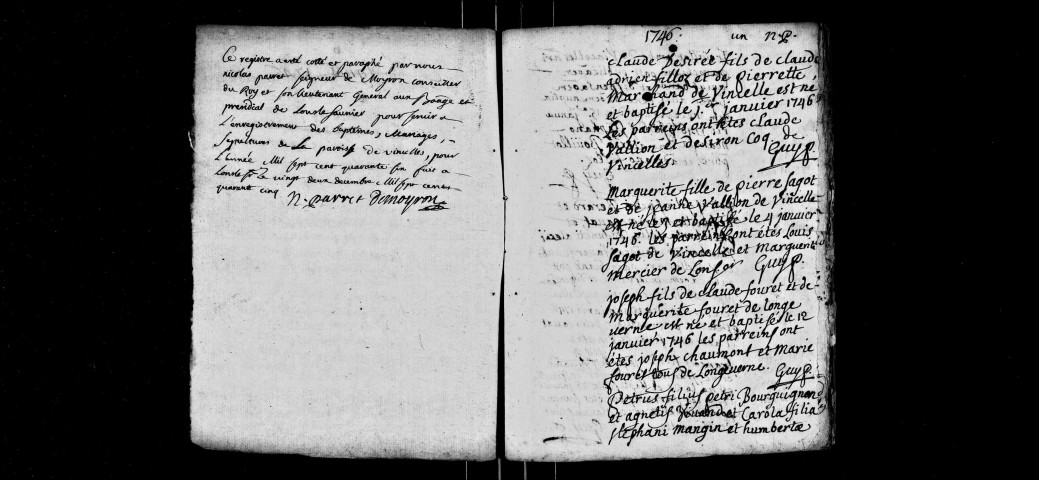 Ce registre a esté cotté et paraphé par nous
nicolas parret seigneur de Moyron conseiller
du Roy et son lieutenant General aux Bâage et
presidial de Lonslesaunier pour servir a
L'enregistrement des baptêmes, Mariages,
sepultures de La paroisse de vincelles, pour
L'année Mil sept cent quarante six fait a
Lonsle le vingt deux decembre Mil sept cents
quarant cinq N. parret Demoyron
1746. un N.P.
claude desirée fils de claude
adrien filloz et de pierrette
Marchand de Vincelle est né
et baptisé le j.er janvier 1746
Les parreins ont êtes claude
Vallion et desiron Coq de
Vincelles Guy p.
Marguerite fille de pierre sagot
et de jeanne Vallion de Vincelle
est né le et baptisé le 4 janvier
1746. les parreins ont êtes Louis
sagot de Vincelle et Marguerit
Mercier de Guy p.
joseph fils de claude fouret et de
Marguerite fouret de longe
verne est né et baptisé le 12
janvier 1746 les parreins ont
êtes joseph chaumont et Marie
fouret tous de Longeverne. Guy p.
Petrus filius petri Bourguignon
et agnetis et Carola filia
stephani mangin et humbertæ